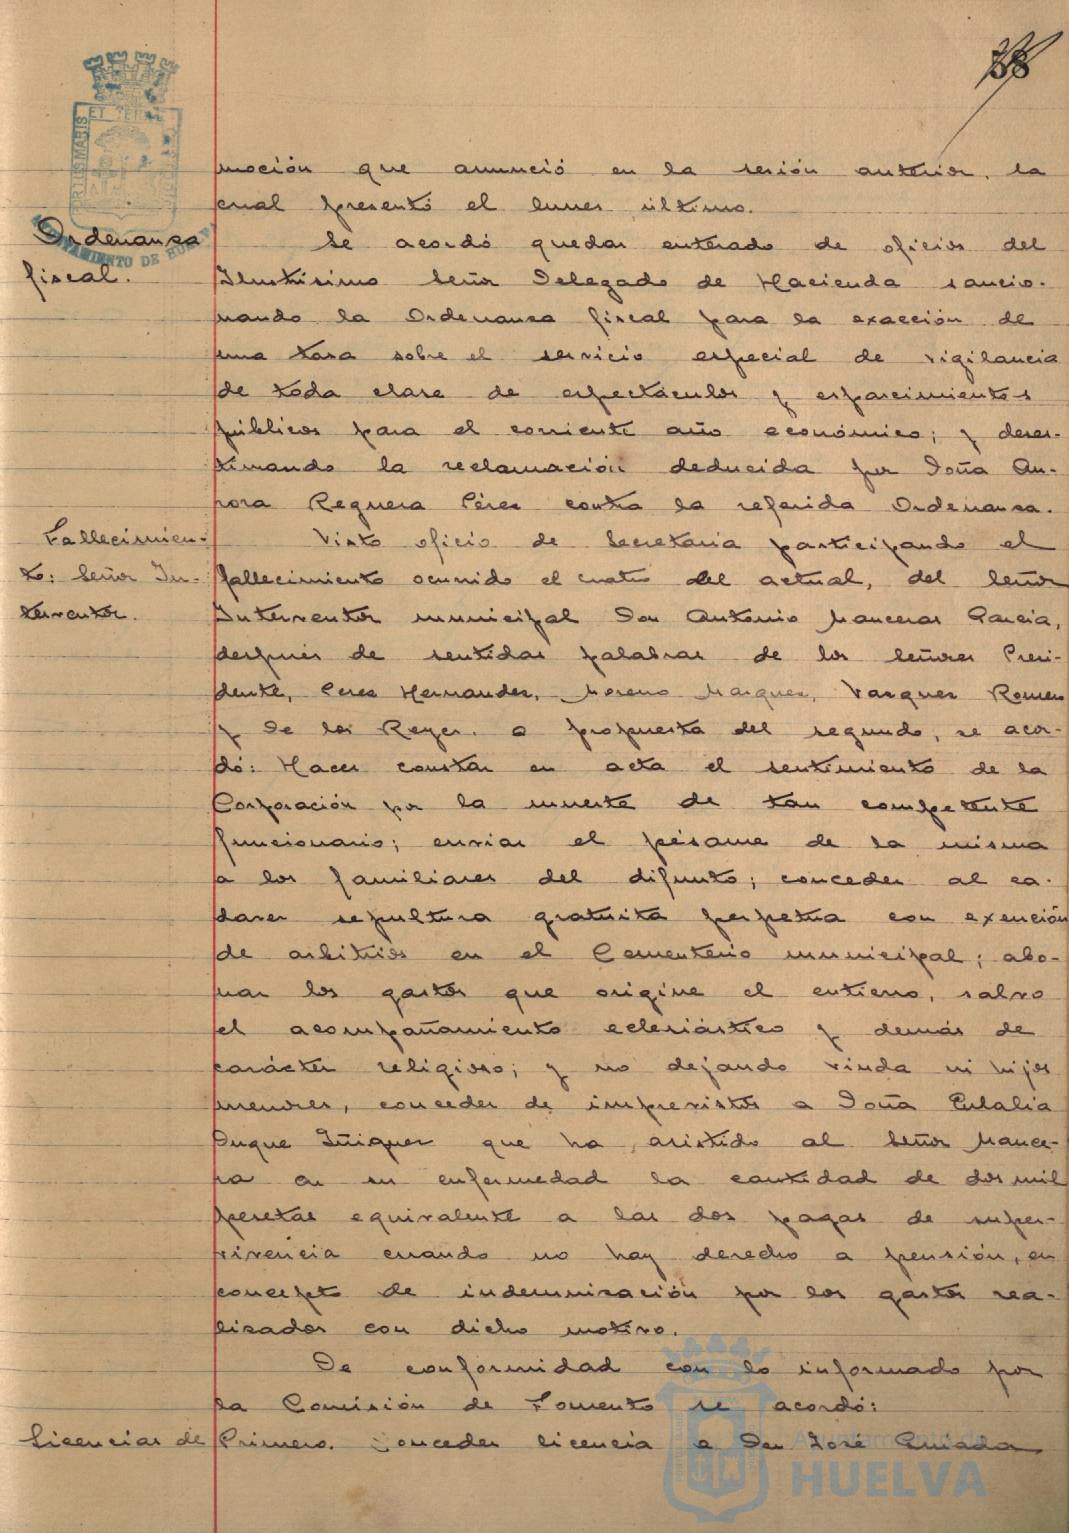 38
moción que anunció en la sesión anterior, la
cual presentó el lunes último.
Ordenansa
fiscal.
Se acordó quedar enterado de oficios del
Ilustrísimo Señor Delegado de Hacienda sancio-
nando la Ordenansa fiscal para la exacción de
una tasa sobre el servicio especial de vigilancia
de toda clase de espectáculos y esparcimientos
públicos para el corriente año económico; y deses-
timando la reclamación deducida por Doña Au-
rora Reguera Péres contra la referida Ordenansa.
Fallecimien-
to: Señor In-
terventor.
Visto oficio de Secretaría participando el
fallecimiento ocurrido el cuatro del actual, del Señor
Interventor municipal Don Antonio Manceras García,
después de sentidas palabras de los Señores Presi-
dente, Peres Hernandes, Moreno Marques, Vasques Romero
y De los Reyes. a propuesta del segundo, se acor-
dó: Hacer constar en acta el sentimiento de la
Corporación por la muerte de tan competente
funcionario; enviar el pésame de la misma
a los familiares del difunto; conceder al ca-
daver sepultura gratuita perpetua con exención
de arbitrios en el Cementerio municipal; abo-
nar los gastos que origine el entierro, salvo
el acompañamiento eclesiástico y demás de
carácter religioso; y no dejando viuda ni hijos
menores, conceder de imprevistos a Doña Eulalia
Duque Iñigues que ha asistido al Señor Mance-
ra en su enfermedad la cantidad de dos mil
pesetas equivalente a las dos pagas de super-
vivencia cuando no hay derecho a pensión, en
concepto de indemnisación por los gastos rea-
lisados con dicho motivo.
De conformidad con lo informado por
la Comisión de Fomento se acordó:
Licencias de
Primero. Conceder licencia a Don José
Ayuntamiento de
HUELVA